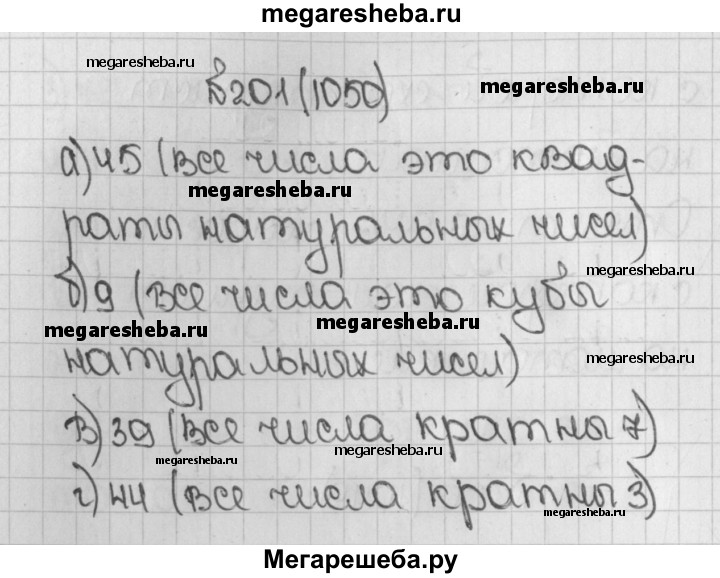 megaresheba.ru
megaresheba.ru
№201(1050)
megaresheba.ru
а) 45 (все числа это квад-
megaresheba.ru
раты натуральных чисел)
megaresheba.ru
б) 9 (все числа это кубы
megaresheba.ru
megaresheba.ru
натуральных чисел)
megaresheba.ru
в) 39 (все числа кратны 7)
megaresheba.ru
megaresheba.ru
г) 44 (все числа кратны 3)
megaresheba.ru
Мегарешеба.ру